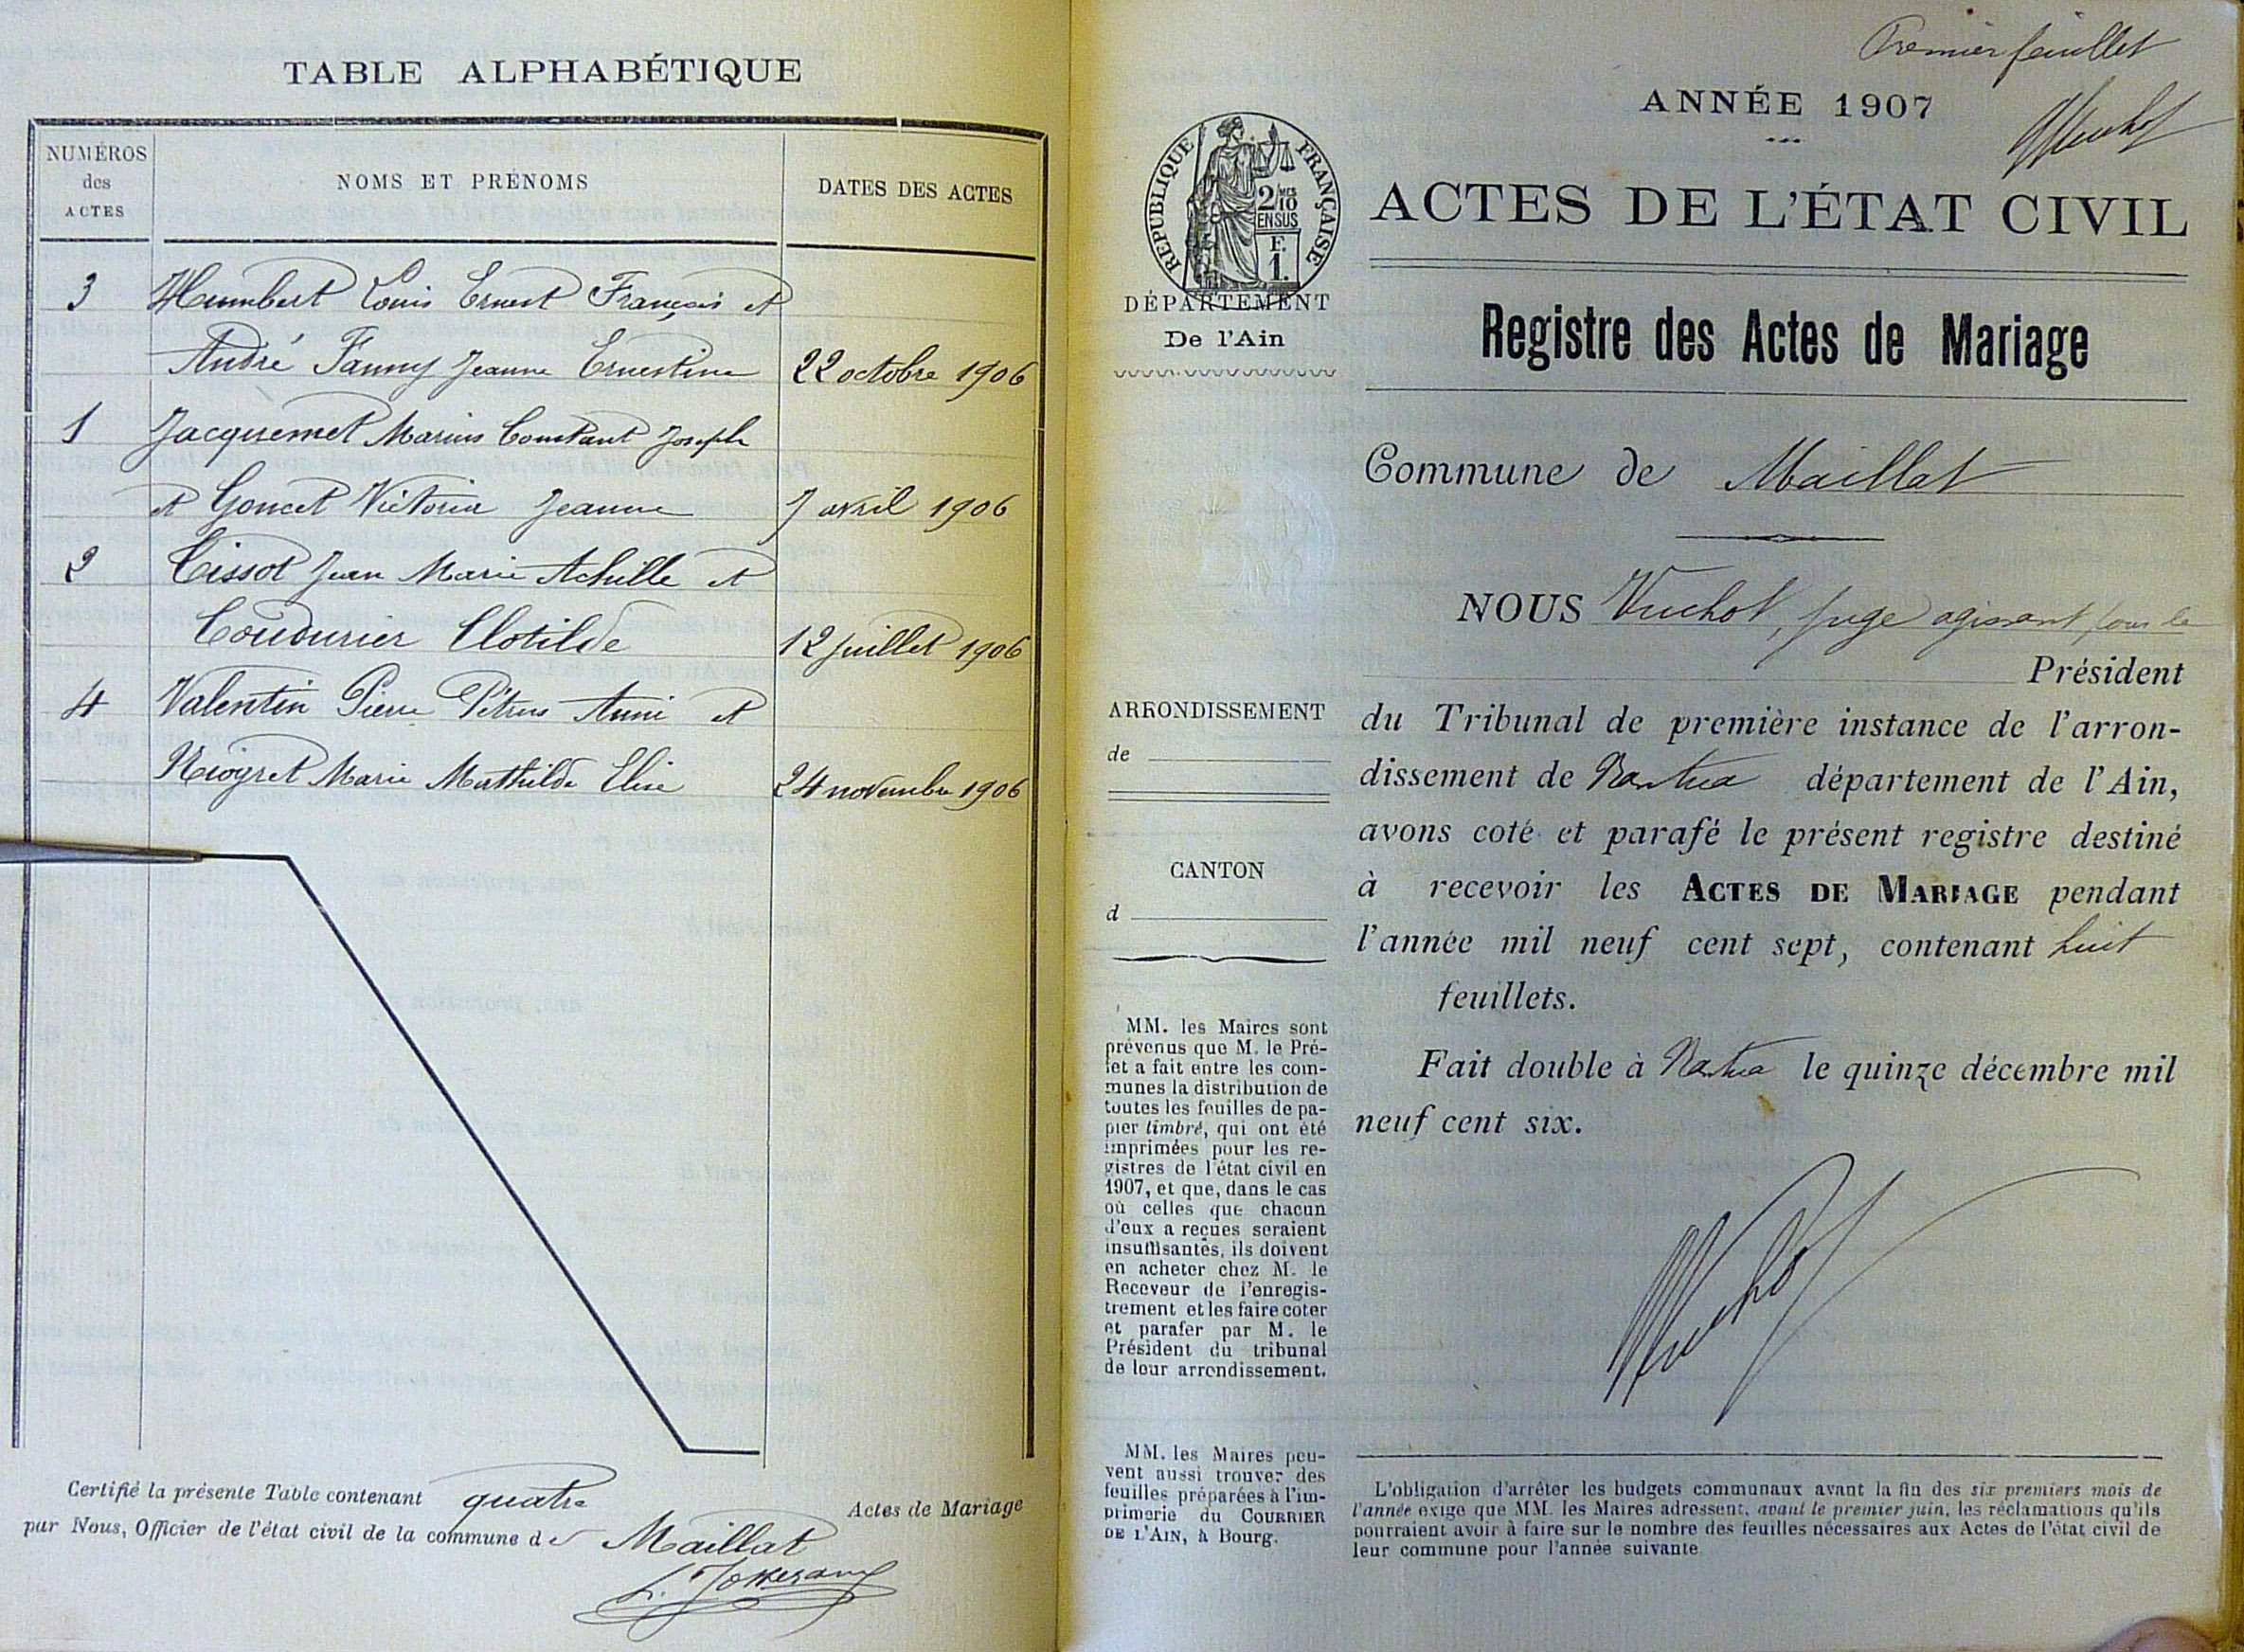 TABLE ALPHABÉTIQUE
NUMÉROS
des
ACTES
NOMS ET PRÉNOMS
DATES DES ACTES
3 Humbert Louis Ernest François et
André Fanny Jeanne Ernestine 22 octobre 1906
1 Jacquemet Marius Constant Joseph
et Goncet Victoria Jeanne 7 avril 1906
2 Tissot Jean Marie Achille et
Coudurier Clotilde 12 juillet 1906
4 Valentin Pierre Pétrus Anni et
Niogret Marie Mathilde Elise 24 novembre 1906
Certifié la présente Table contenant quatre Actes de Mariage
par Nous, Officier de l'état civil de la commune de Maillat
Premier feuillet
Vuchot
ANNÉE 1907
ACTES DE L'ÉTAT CIVIL
RÉPUBLIQUE FRANÇAISE
2/10
MES
EN SUS
F.
1.
DÉPARTEMENT
De l'Ain
Registre des Actes de Mariage
Commune de Maillat
NOUS Vuchot, juge agissant pour le
Président
du Tribunal de première instance de l'arron-
dissement de Nantua département de l'Ain,
avons coté et parafé le présent registre destiné
à recevoir les ACTES DE MARIAGE pendant
l'année mil neuf cent sept, contenant huit
feuillets.
Fait double à Nantua le quinze décembre mil
neuf cent six.
Vuchot
ARRONDISSEMENT
de
CANTON
d
MM. les Maires sont
prévenus que M. le Pré-
fet a fait entre les com-
munes la distribution de
toutes les feuilles de pa-
pier timbré, qui ont été
imprimées pour les re-
gistres de l'état civil en
1907, et que, dans le cas
où celles que chacun
d'eux a reçues seraient
insuffisantes, ils doivent
en acheter chez M. le
Receveur de l'enregis-
trement et les faire coter
et parafer par M. le
Président du tribunal
de leur arrondissement.
MM. les Maires peu-
vent aussi trouver des
feuilles préparées à l'im-
primerie du COURRIER
DE L'AIN, à Bourg.
L'obligation d'arrêter les budgets communaux avant la fin des six premiers mois de
l'année exige que MM. les Maires adressent, avant le premier juin, les réclamations qu'ils
pourraient avoir à faire sur le nombre des feuilles nécessaires aux Actes de l'état civil de
leur commune pour l'année suivante.